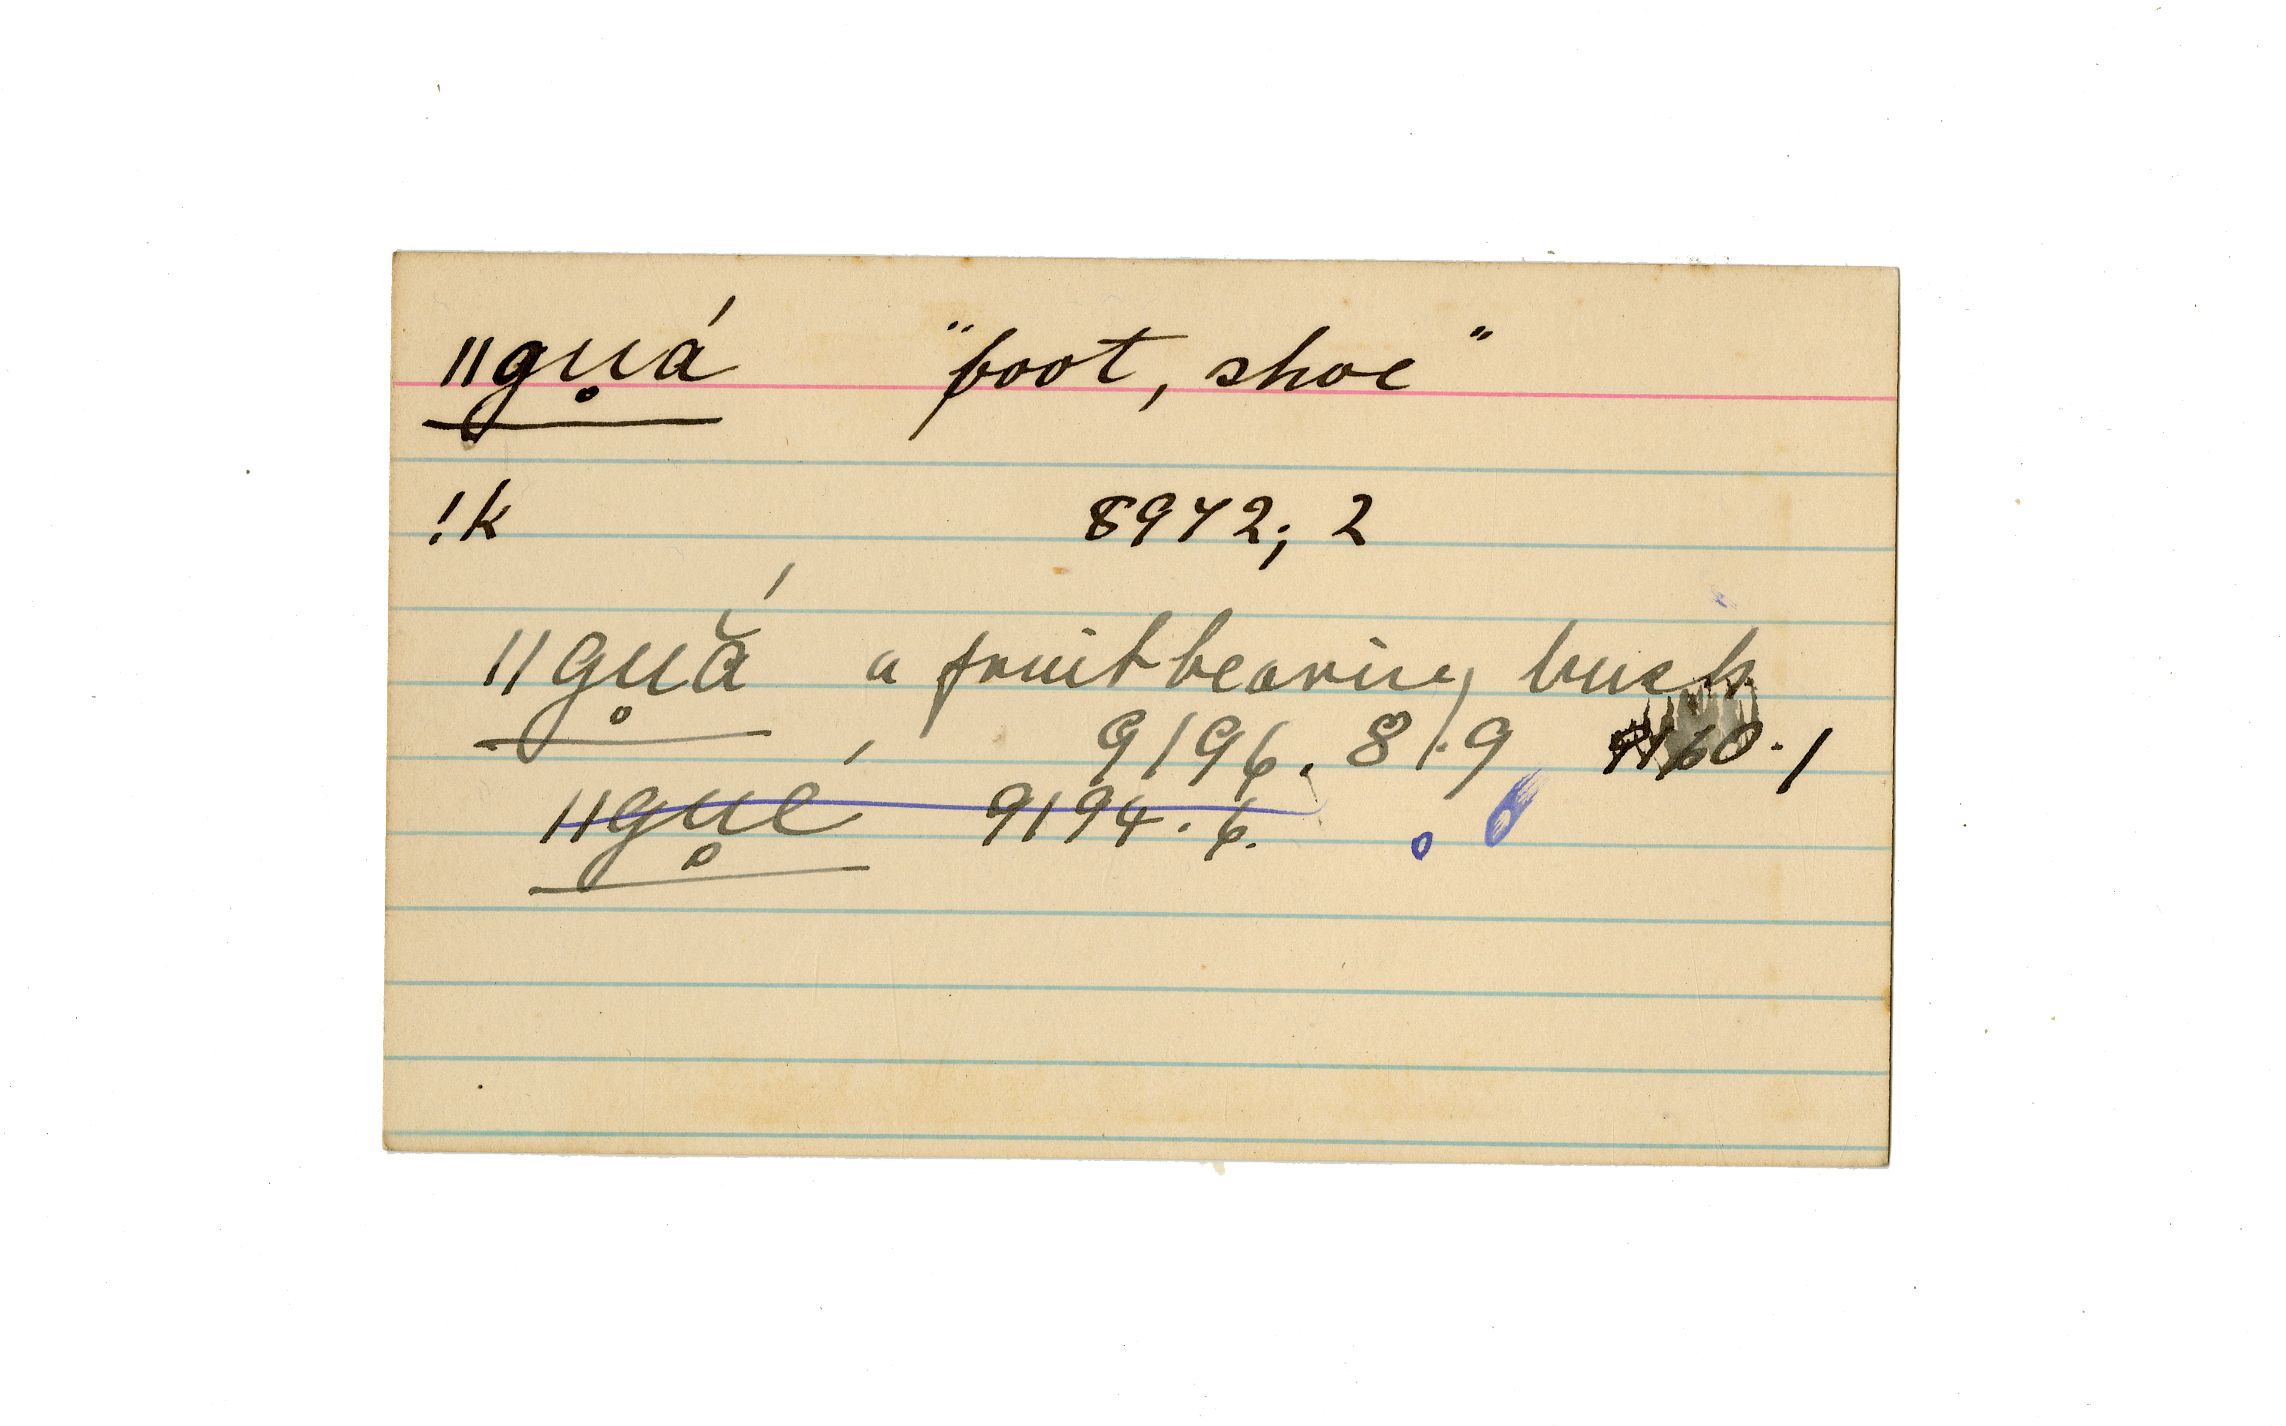 ǁgu̥á "foot, shoe"
!k 8972; 2
ǁgu̥ā̆́ a fruit bearing bush
9196. 8.9 9160.1
ǁgu̥é 9194.6.